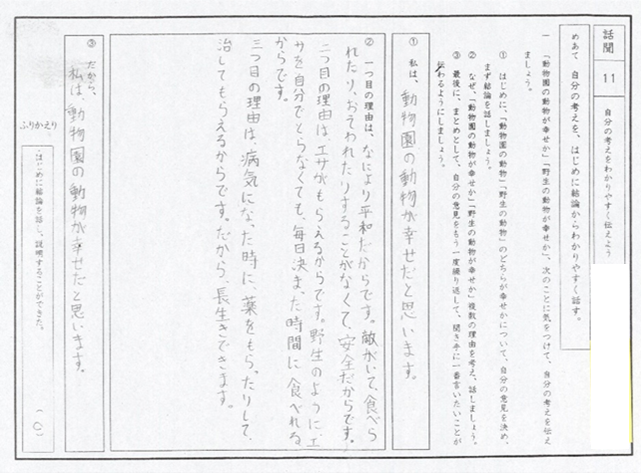 話聞 11 自分の考えをわかりやすく伝えよう
めあて 自分の考えを、はじめに結論からわかりやすく話す。
一 「動物園の動物が幸せか」「野生の動物が幸せか」、次のことに気をつけて、自分の考えを伝え
ましょう。
① はじめに、「動物園の動物」「野生の動物」のどちらが幸せかについて、自分の意見を決め、
まず結論を話しましょう。
② なぜ、「動物園の動物が幸せか」「野生の動物が幸せか」複数の理由を考え、話しましょう。
③ 最後に、まとめとして、自分の意見をもう一度繰り返して、聞き手に一番言いたいことが
伝わるようにしましょう。
① 私は、動物園の動物が幸せだと思います。
② 一つ目の理由は、なにより平和だからです。敵がいて、食べら
れたり、おそわれたりすることがなくて、安全だからです。
二つ目の理由は、エサがもらえるからです。野生のように、エ
サを自分でとらなくても、毎日決まった時間に食べれる
からです。
三つ目の理由は、病気になった時に、薬をもらったりして、
治してもらえるからです。だから、長生きできます。
③ だから、
私は、動物園の動物が幸せだと思います。
ふりかえり
・はじめに結論を話し、説明することができた。 (○)